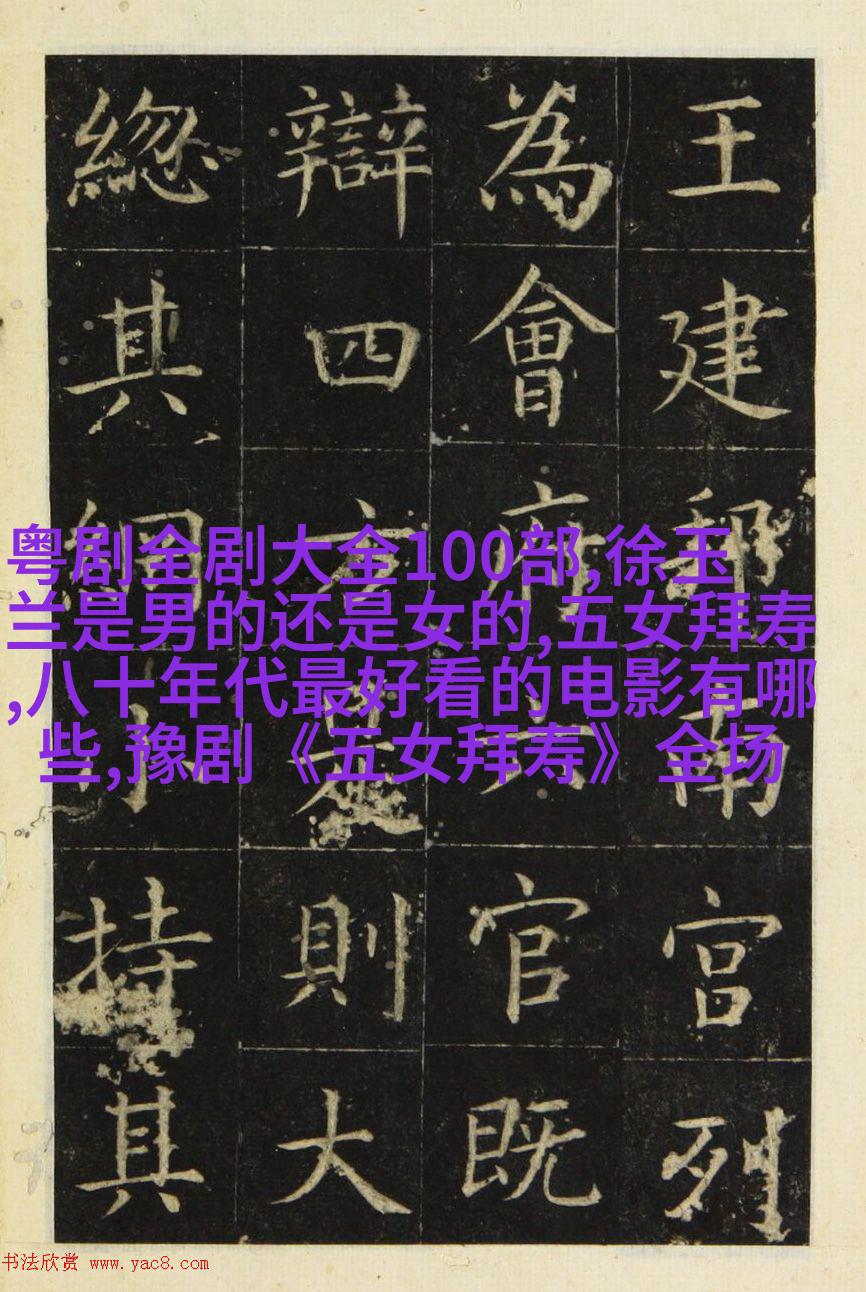 王建邦南宮列
為會府六官既
辯四方是則大
緫其綱小持其
粤剧全剧大全100部,徐玉
兰是男的还是女的,五女拜寿
,八十年代最好看的电影有哪
些,豫剧《五女拜寿》全场
书法欣赏 www.yac8.com